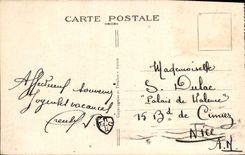 CARTE POSTALE
Affectueux souvenirs
Joyeuses vacances
Mademoiselle
S. Dulac
"Palais de Valence"
15 Bd de Cimiez
Nice
A.M.